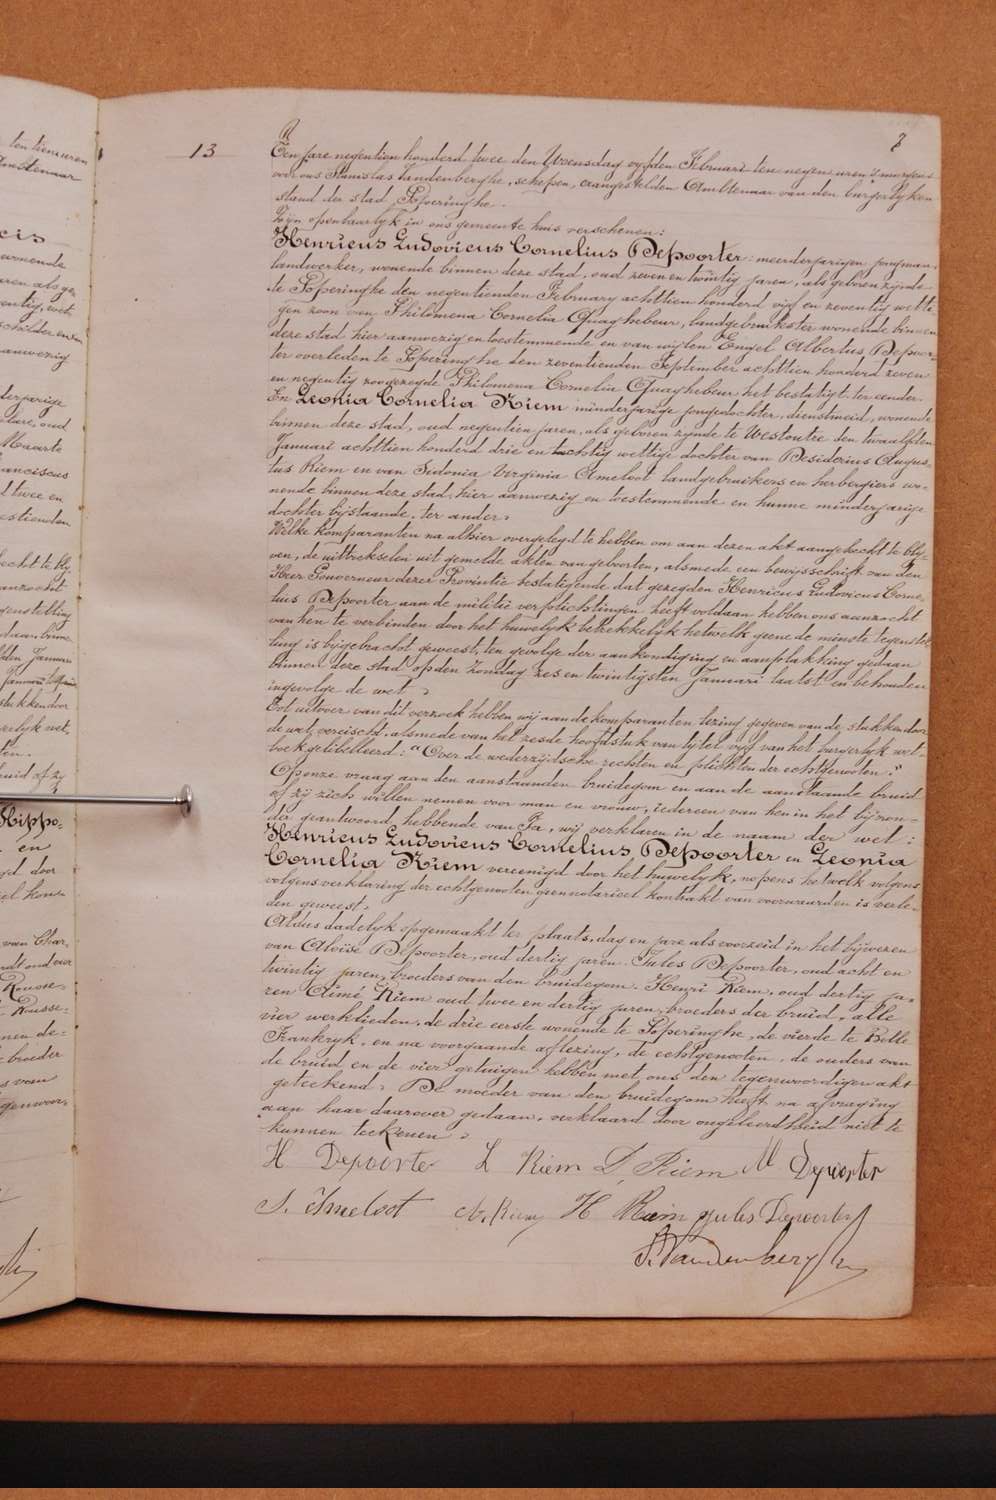 ten tien uren
Amstenaar
cis
wonende
aren als ge
schilder en
aanwezig
derjarige
Clare, oud
Meaarte
anciscus
d twee en
estienden
echt te bly
aanzocht
genstelling
daan binne
den Januari
stukken door
erlyk wet,
ten.
bruid of zy
Hippo-
en
yd door
van Char,
Rousse-
Rousse-
nen de-
broeder
s vom
genwoor,
13
7
Ten jare negentien honderd twee den Woensdag vyfden Februari ten negen uren 's morgens
voor ons Stanislas Vandenberghe, schepen, aangestelden Ambtenaar van den burgerlyken
stand der stad Poperinghe.
Zyn openbaarlyk in ons gemeente huis verschenen:
Henricus Ludovicus Cornelius Depoorter: meerderjarigen jongman,
landwerker, wonende binnen deze stad, oud zeven en twintig jaren, als geboren zynde
te Poperinghe den negentienden February achttien honderd vyf en zeventig wetti-
gen zoon van Philomena Cornelia Quaghebeur, landgebruikster wonende binnen
deze stad hier aanwezig en toestemmende en van wylen Engel Albertus Depoor-
ter overleden te Poperinghe den zeventienden September achttien honderd zeven
en negentig zoo gezegde Philomena Cornelia Quaghebeur het bestatigt. ter eender.
En Leonia Cornelia Riem minderjarige jongedochter, dienstmeid, wonende
binnen deze stad, oud negentien jaren, als geboren zynde te Westoutre den twaalfden
Januari achttien honderd drie en tachtig wettige dochter van Desiderius Augus-
tus Riem en van Sidonia Virginia Ameloot landgebruikers en herbergiers wo-
nende binnen deze stad, hier aanwezig en toestemmende en hunne minderjarige
dochter bijstaande. ter ander.
Welke komparanten na alhier overgelegd te hebben om aan dezen akt aangehecht te bly-
ven, de uittrekselen uit gemelde akten van geboorten, alsmede een bewijsschrift van den
Heer Gouverneur dezer Provintie bestatigende dat gezegden Henricus Ludovicus Corne-
lius Depoorter aan de militie verplichtingen heeft voldaan hebben ons aanzocht
van hen te verbinden door het huwelyk betrekkelyk hetwelk geene de minste tegenstel-
ling is bijgebracht geweest, ten gevolge der aankondiging en aanplakking gedaan
binnen deze stad op den Zondag zes en twintigsten Januari laatst en behouden
ingevolge de wet.
Tot uitvoer van dit verzoek hebben wij aan de komparanten lezing gegeven van de stukken door
de wet vereischt, alsmede van het zesde hoofdstuk van tytel vyf van het burgerlyk wet-
boek gelibelleerd: "Over de wederzijdsche rechten en plichten der echtgenooten."
Op onze vraag aan den aanstaanden bruidegom en aan de aanstaande bruid
of zij zich willen nemen voor man en vrouw, iedereen van hen in het bijzon-
der geantwoord hebbende van Ja, wij verklaren in de naam der wet:
Henricus Ludovicus Cornelius Depoorter en Leonia
Cornelia Riem vereenigd door het huwelyk, nopens hetwelk volgens
volgens verklaring der echtgenooten geen notarieel kontrakt van voorwaarden is verle-
den geweest.
Aldus dadelyk opgemaakt ter plaats, dag en jare als voorzeid in het bijwezen
van Aloïse Depoorter, oud dertig jaren. Jules Depoorter, oud acht en
twintig jaren, broeders van den bruidegom. Henri Riem, oud dertig ja-
ren Aimé Riem oud twee en dertig jaren, broeders der bruid, alle
vier werklieden, de drie eerste wonende te Poperinghe, de vierde te Belle
Frankryk, en na voorgaande aflezing, de echtgenooten, de ouders van
de bruid en de vier getuigen hebben met ons den tegenwoordigen akt
geteekend. De moeder van den bruidegom heeft, na afvraging
aan haar daarover gedaan, verklaard door ongeleerdheid niet te
kunnen teekenen.
H Depoorte L Riem D, Riem Al Depoorter
S. Ameloot A. Riem H Riem Jules Depoorter
S. Vandenberghe